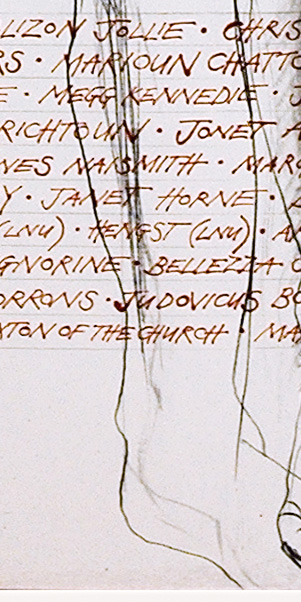 LIZON JOLLIE · CHRIS
RS · MARIOUN CHATTO
E · MEGG KENNEDIE · J
RICHTOUN · JONET A
NES NAISMITH · MAR
Y · JANET HORNE ·
(LNU) · HENGST (LNU) · A
GNORINE · BELLEZZA ·
ORRONS · JUDOVICUS BO
XTON OF THE CHURCH · MA